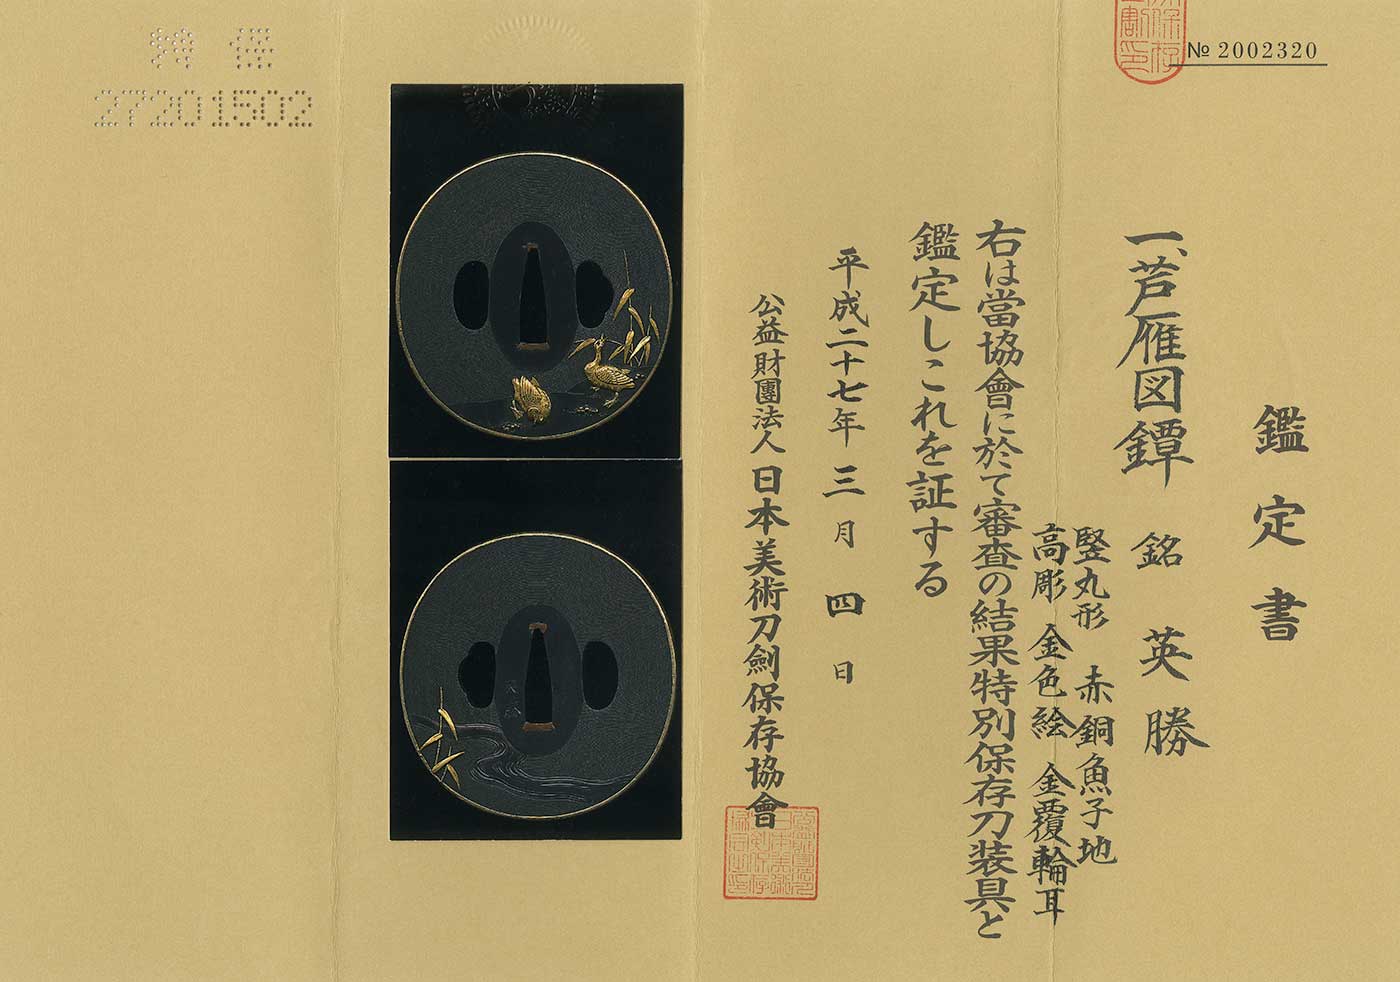 № 2002320
鑑定書
一、芦雁図鐔 銘 英勝
竪丸形 赤銅魚子地
高彫 金色絵 金覆輪耳
右は當協會に於て審査の結果特別保存刀装具と
鑑定しこれを証する
平成二十七年 三月 四日
公益財團法人 日本美術刀劍保存協會
27201502